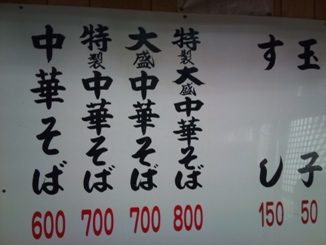 玉子
50
すし
150
特製大盛中華そば
800
大盛中華そば
700
特製中華そば
700
中華そば
600